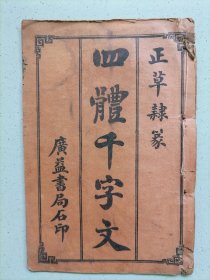 正草隸篆
四體千字文
廣益書局石印